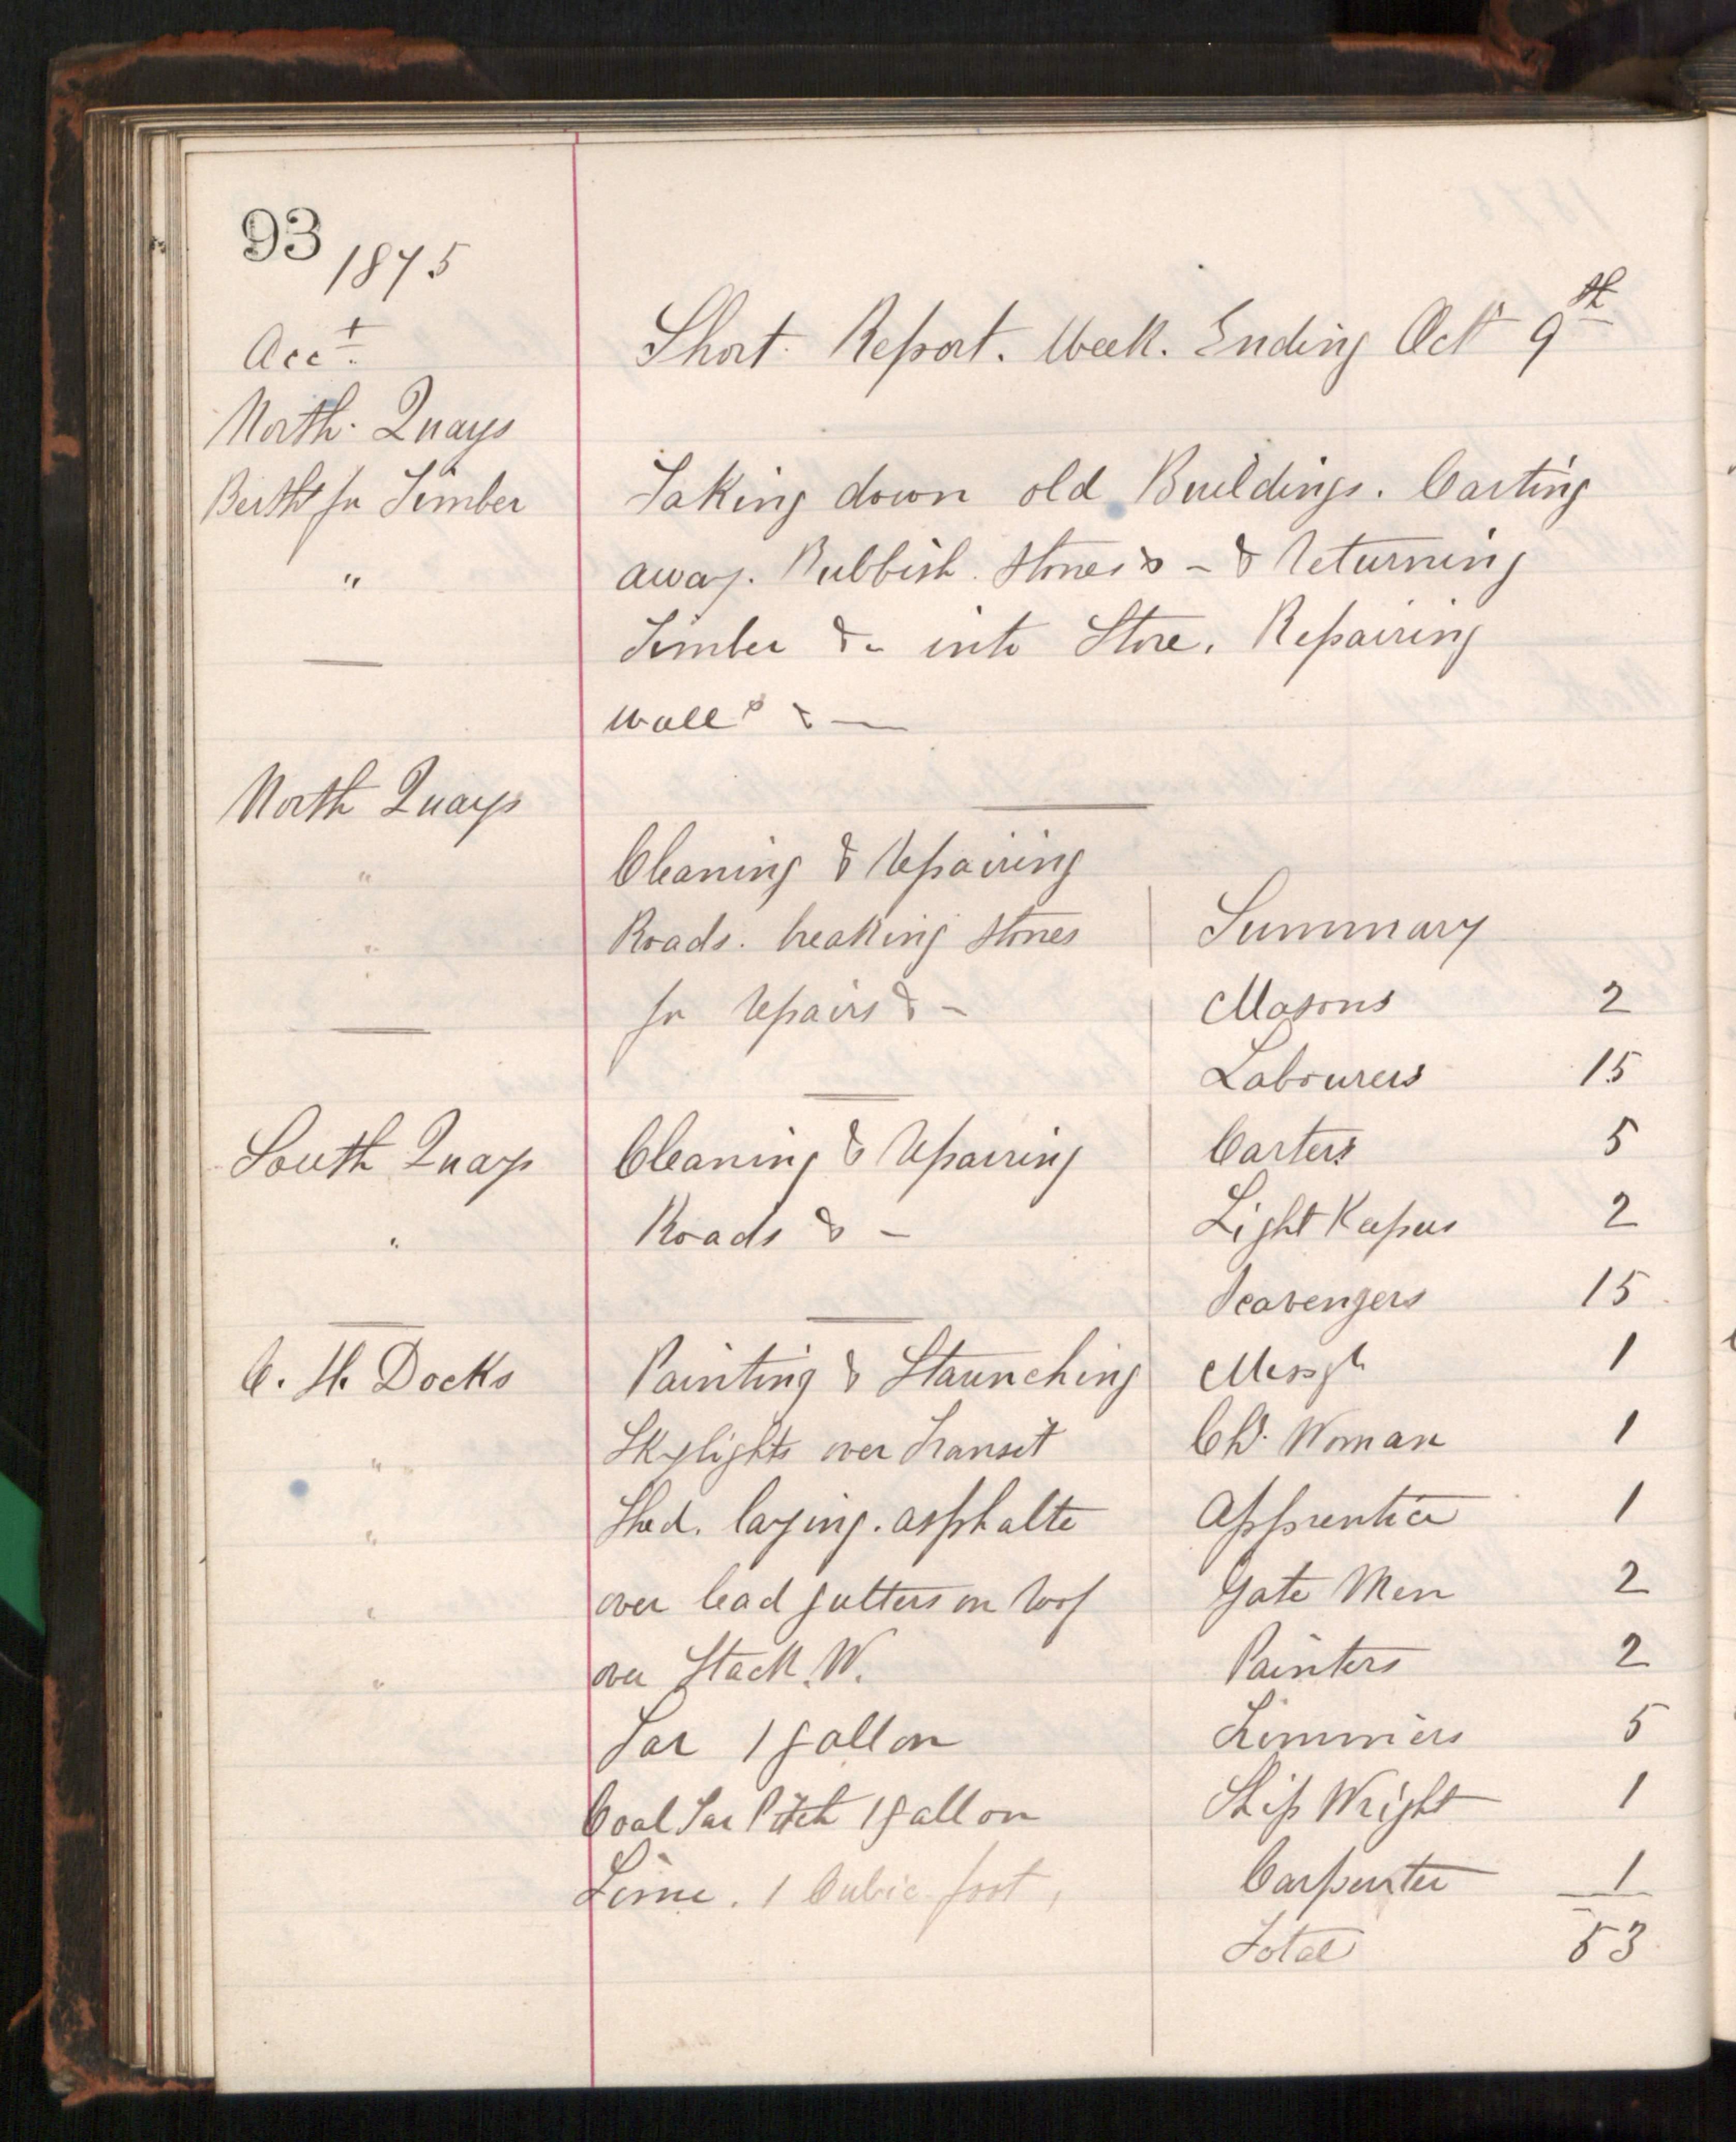 93
1875
Acct.
Short Report. Week. Ending Oct 9th
North Quays
Berths for Timber
Taking down old Buildings. Carting
" away. Rubbish. Stones & - & returning
Timber &- into Store. Repairing
walls & -
North Quays
" Cleaning & repairing
" Roads. breaking Stones
for repairs & -
South Quays Cleaning & repairing
" Roads & -
C. H. Docks Painting & Staunching
" Skylights over Transit
" Shed. laying. asphalte
" over lead gutters on roof
" over Stack. W.
Tar 1 gallon
Coal Tar Pitch 1 gallon
Lime. 1 Cubic foot,
Summary
Masons 2
Labourers 15
Carters 5
Light Keepers 2
Scavengers 15
Messgr 1
Ch. Woman 1
Apprentice 1
Gate Men 2
Painters 2
5
Ship Wright 1
Carpenter 1
Total 53